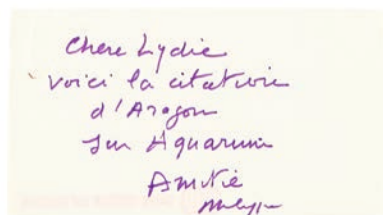 Chere Lydie
voici la citation
d'Aragon
sur Aquarium
Amitié